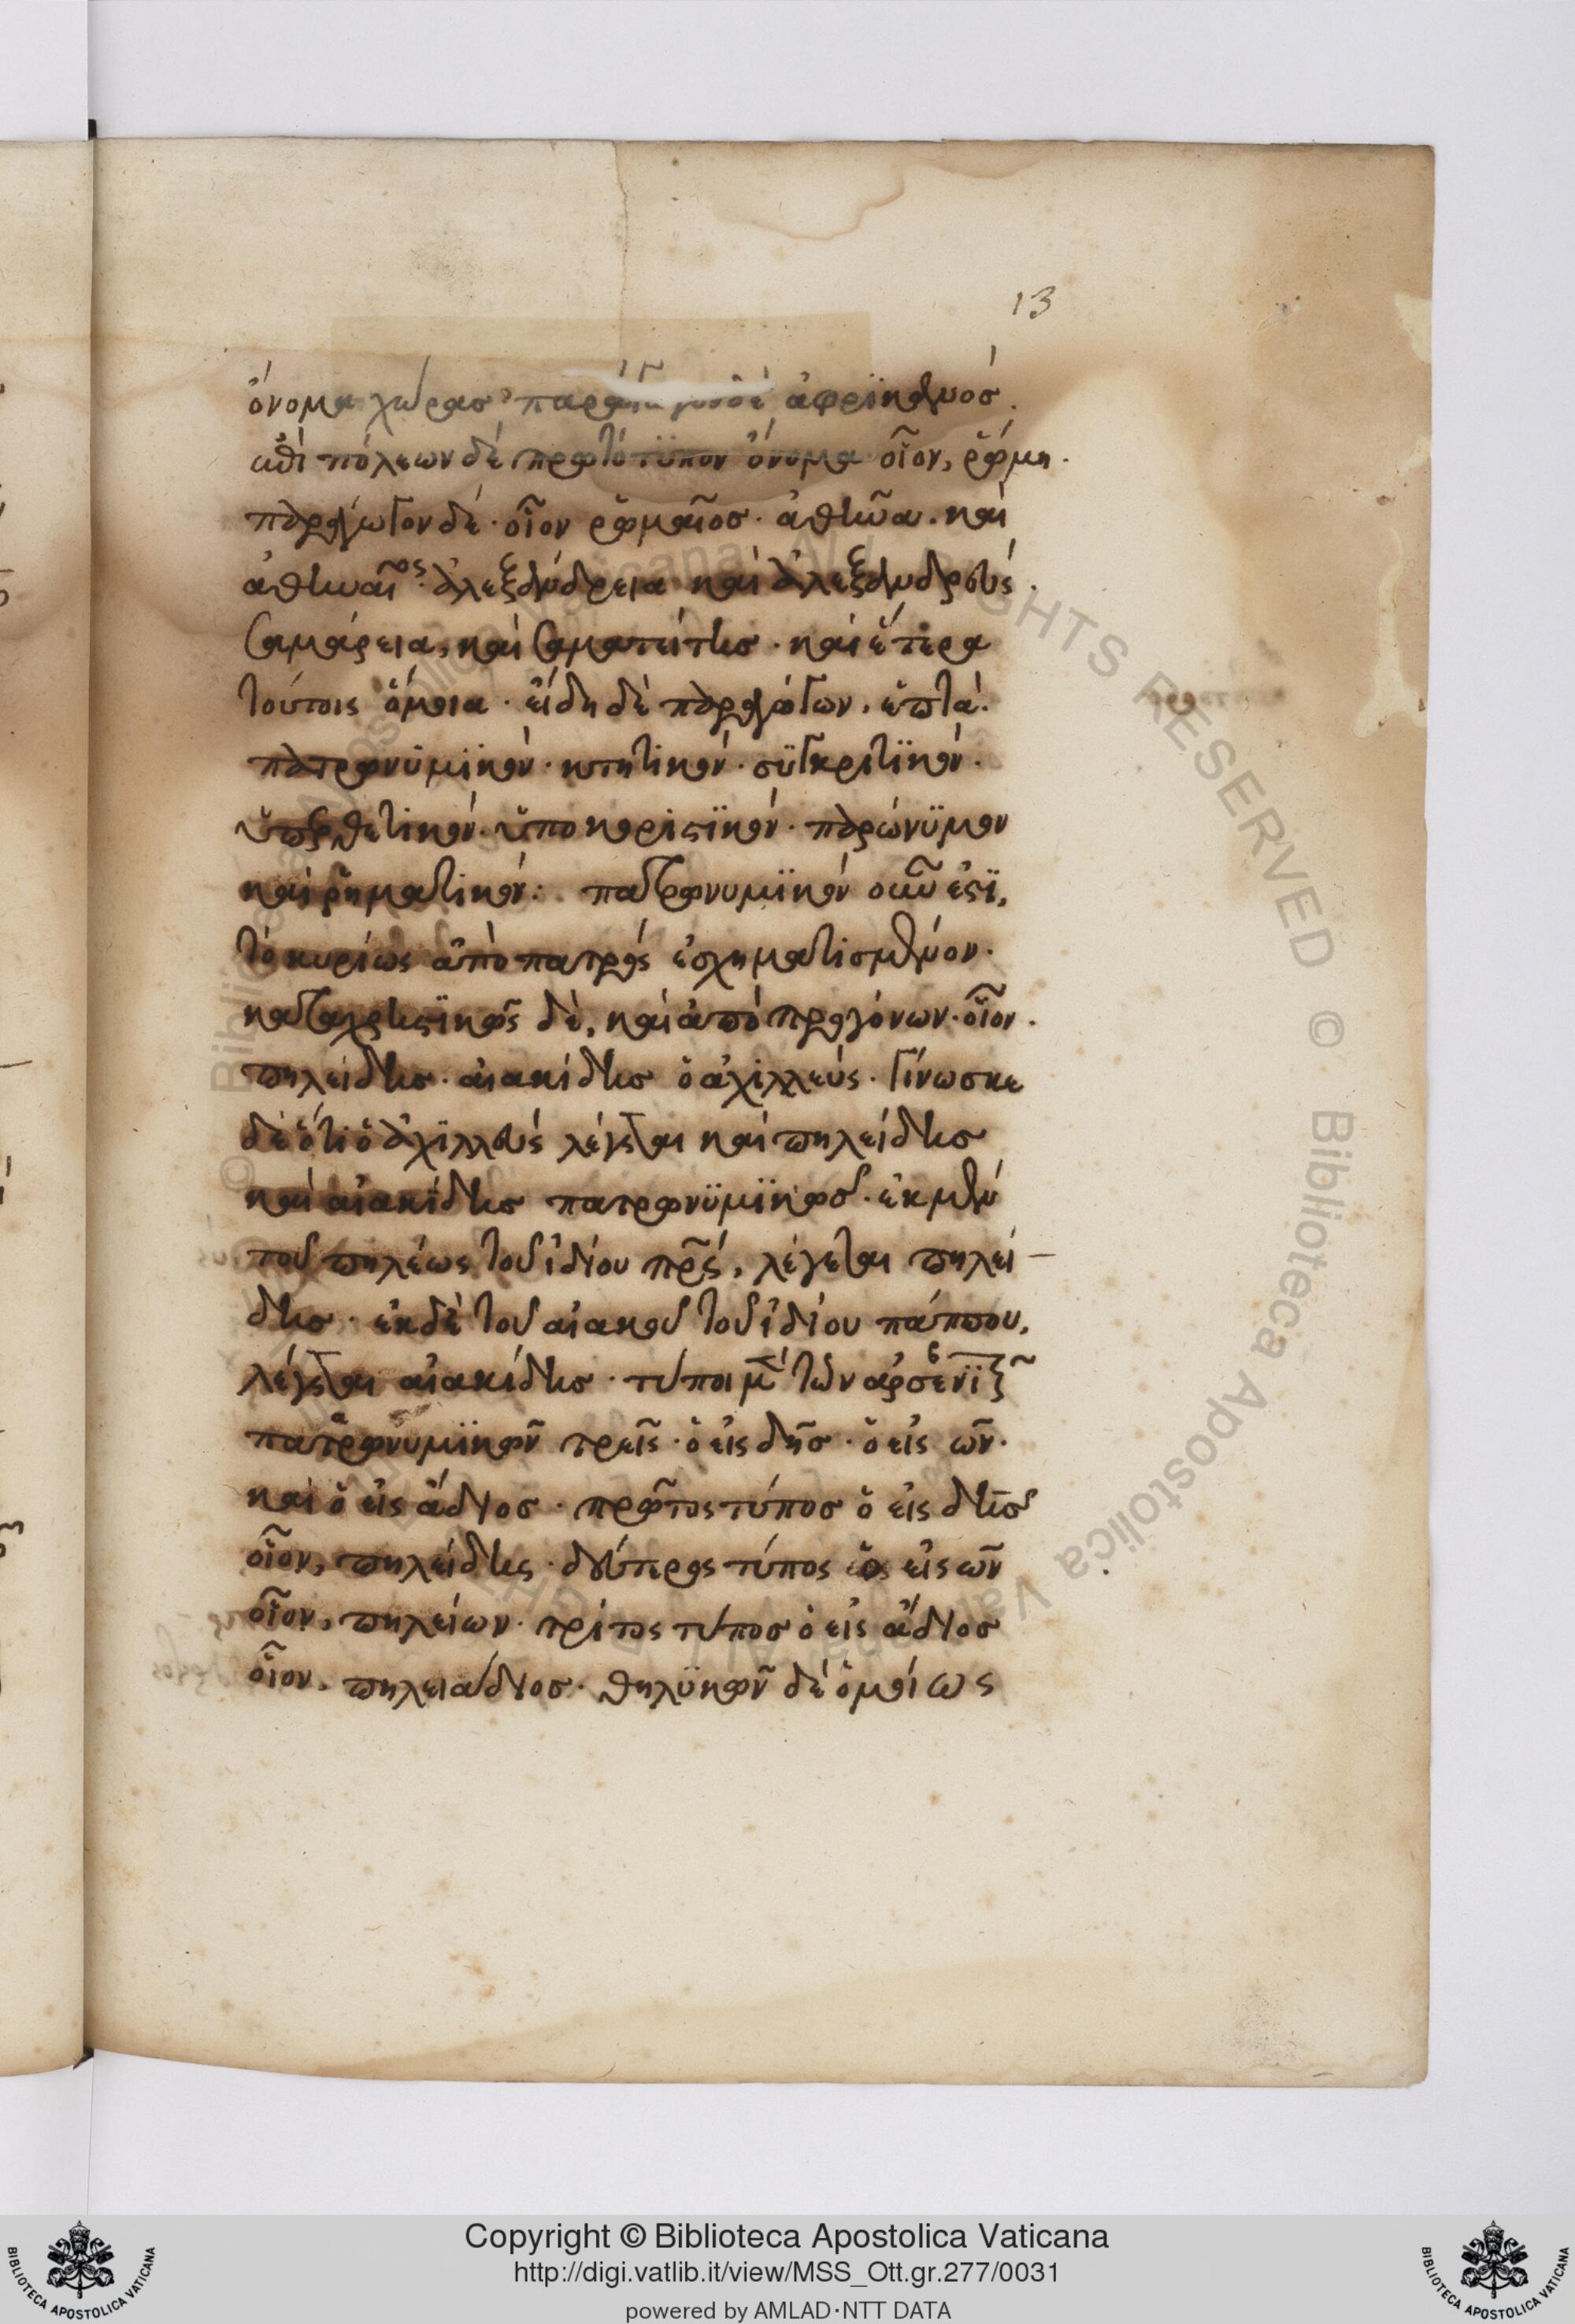 13
ὄνομα χώρασ παρά δὲ ἀφρϊκανὸσ.
ἐπὶ πόλεων δὲ πρωτότϋπον ὄνομα οἷον, ῥώμη.
παραγωγον δέ· οἷον ῥωμαῖοσ· ἀθῆνα. καὶ
ἀθηναῖος· ἀλεξάνδρεια καὶ ἀλεξανδρεύς.
σαμάρεια, καὶ σαμαρείτησ· καὶ ἕτερα
τούτοις ὅμοια· εἴδη δὲ παραγώγων, ἑπτά·
πατρωνϋμϊκόν· κτητικόν· συγκριτϊκόν·
ὑπερθετικόν· ὑποκορισϊκόν· παρώνϋμον
καὶ ῥηματικόν: πατρωνυμϊκόν οὖν ἐστϊ,
τὸ κυρίως ἀπὸ πατρός ἐσχηματισμένον·
καταχρηστϊκῶς δὲ, καὶ ἀπὸ προγόνων· οἷον·
πηλείδησ· αἰακίδησ ὁ ἀχιλλεύς· Γίνωσκε
δὲ ὅτι ὁ ἀχϊλλεύς λέγεται καὶ πηλείδησ
καὶ αἰακίδησ πατρωνϋμϊκῶσ· ἐκ μὲν
τοῦ πηλέως τοῦ ἰδίου πρς, λέγεται πηλεί
δησ· ἐκ δὲ τοῦ αἰακοῦ τοῦ ἰδίου πάππου,
λέγεται αἰακίδησ· τύποι μ τῶν ἀρσενϊκ
πατρωνυμϊκῶν τρεῖς· ὁ εἰς δησ· ὁ εἰς ων·
καὶ ὁ εἰς άδιοσ· πρῶτος τύποσ ὁ εἰς δησ
οἷον, πηλείδης· δεύτερος τύπος ὁ εἰς ων
οἷον, πηλείων· τρίτος τύποσ ὁ εἰς άδιοσ
οἷον, πηλειάδιοσ· θηλϋκῶν δὲ ὁμοίως
Copyright © Biblioteca Apostolica Vaticana
http://digi.vatlib.it/view/MSS_Ott.gr.277/0031
powered by AMLAD·NTT DATA